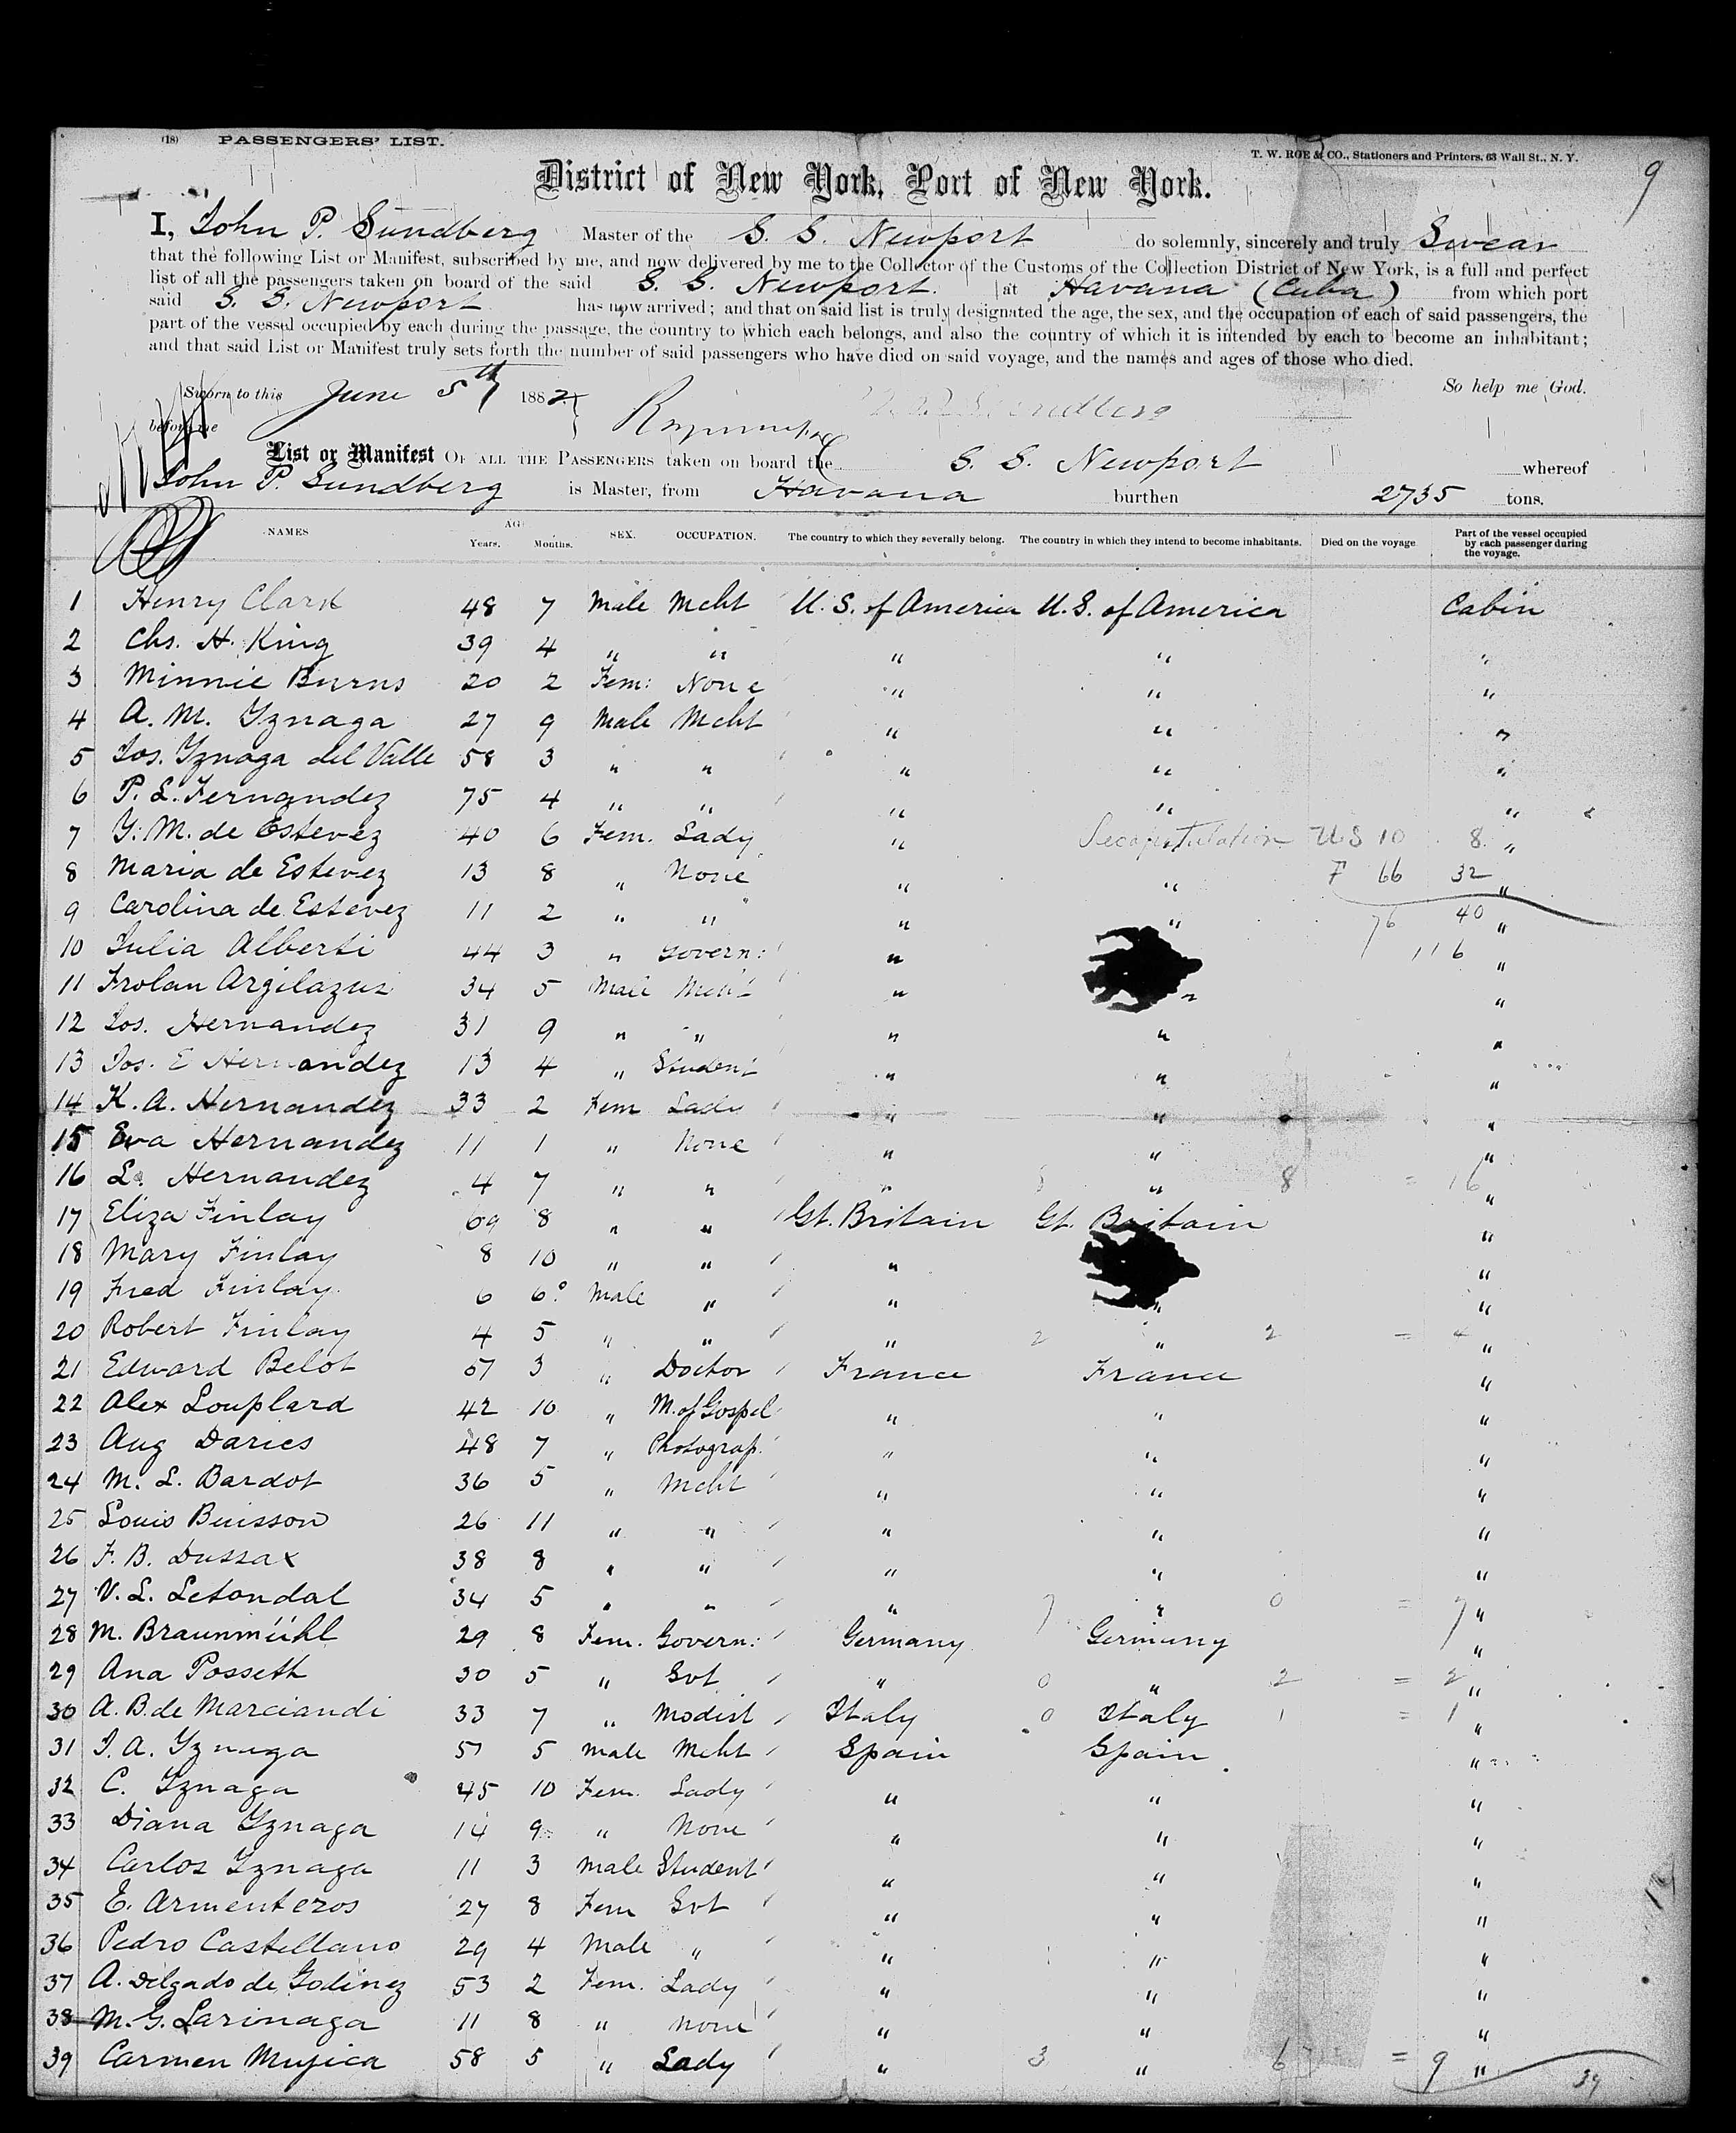 (18) PASSENGERS' LIST.
T. W. ROE & CO., Stationers and Printers, 63 Wall St., N. Y.
9
District of New York, Port of New York.
I, John P. Sundberg Master of the S. S. Newport do solemnly, sincerely and truly Swear
that the following List or Manifest, subscribed by me, and now delivered by me to the Collector of the Customs of the Collection District of New York, is a full and perfect
list of all the passengers taken on board of the said S. S. Newport. at Havana (Cuba) from which port
said S. S. Newport has now arrived; and that on said list is truly designated the age, the sex, and the occupation of each of said passengers, the
part of the vessel occupied by each during the passage, the country to which each belongs, and also the country of which it is intended by each to become an inhabitant;
and that said List or Manifest truly sets forth the number of said passengers who have died on said voyage, and the names and ages of those who died.
Sworn to this June 5th 1882 So help me God.
before me
List or Manifest OF ALL THE PASSENGERS taken on board the S. S. Newport whereof
John P. Sundberg is Master, from Havana burthen 2735 tons.
NAMES AGE Years. Months. SEX. OCCUPATION. The country to which they severally belong. The country in which they intend to become inhabitants. Died on the voyage Part of the vessel occupied by each passenger during the voyage.
1 Henry Clark 48 7 Male Mcht U. S. of America U. S. of America Cabin
2 Chs. H. King 39 4 " " " " "
3 Minnie Burns 20 2 Fem: None " " "
4 A. M. Yznaga 27 9 Male Mcht " " "
5 Jos. Yznaga del Valle 58 3 " " " " "
6 P. L. Fernandez 75 4 " " " " "
7 Y. M. de Estevez 40 6 Fem. Lady " US 10 8 "
8 Maria de Estevez 13 8 " None " " F 66 32 "
9 Carolina de Estevez 11 2 " " " " 76 40 "
10 Julia Alberti 44 3 " Govern: " 116 "
11 Frolan Argilazus 34 5 Male Mcht " " "
12 Jos. Hernandez 31 9 " " " " "
13 Jos. E Hernandez 13 4 " Student " " "
14 K. A. Hernandez 33 2 Fem Lady " " "
15 Eva Hernandez 11 1 " None " " "
16 L. Hernandez 4 7 " " " " 8 = 16 "
17 Eliza Finlay 69 8 " " Gt. Britain Gt. Britain "
18 Mary Finlay 8 10 " " " "
19 Fred Finlay 6 6 Male " " " "
20 Robert Finlay 4 5 " " " 2 " 2 = 4 "
21 Edward Belot 57 3 " Doctor France France "
22 Alex Louplard 42 10 " M. of Gospel " " "
23 Aug Daries 48 7 " Photograp. " " "
24 M. L. Bardot 36 5 " Mcht " " "
25 Louis Buisson 26 11 " " " " "
26 F. B. Dussax 38 8 " " " " "
27 V. L. Letondal 34 5 " " " 7 " 0 = 7 "
28 M. Braunmühl 29 8 Fem. Govern: Germany Germany "
29 Ana Posseth 30 5 " Svt " 0 " 2 = 2 "
30 A. B. de Marciandi 33 7 " Modist Italy 0 Italy 1 = 1 "
31 J. A. Yznaga 51 5 Male Mcht Spain Spain "
32 C. Yznaga 45 10 Fem. Lady " " "
33 Diana Yznaga 14 9 " None " " "
34 Carlos Yznaga 11 3 Male Student " " "
35 E. Armenteros 27 8 Fem Svt " " "
36 Pedro Castellano 29 4 Male " " " "
37 A. Delgado de Godinez 53 2 Fem. Lady " " "
38 M. G. Larinaga 11 8 " None " " "
39 Carmen Mujica 58 5 " Lady " 3 " 6 = 9 "
39